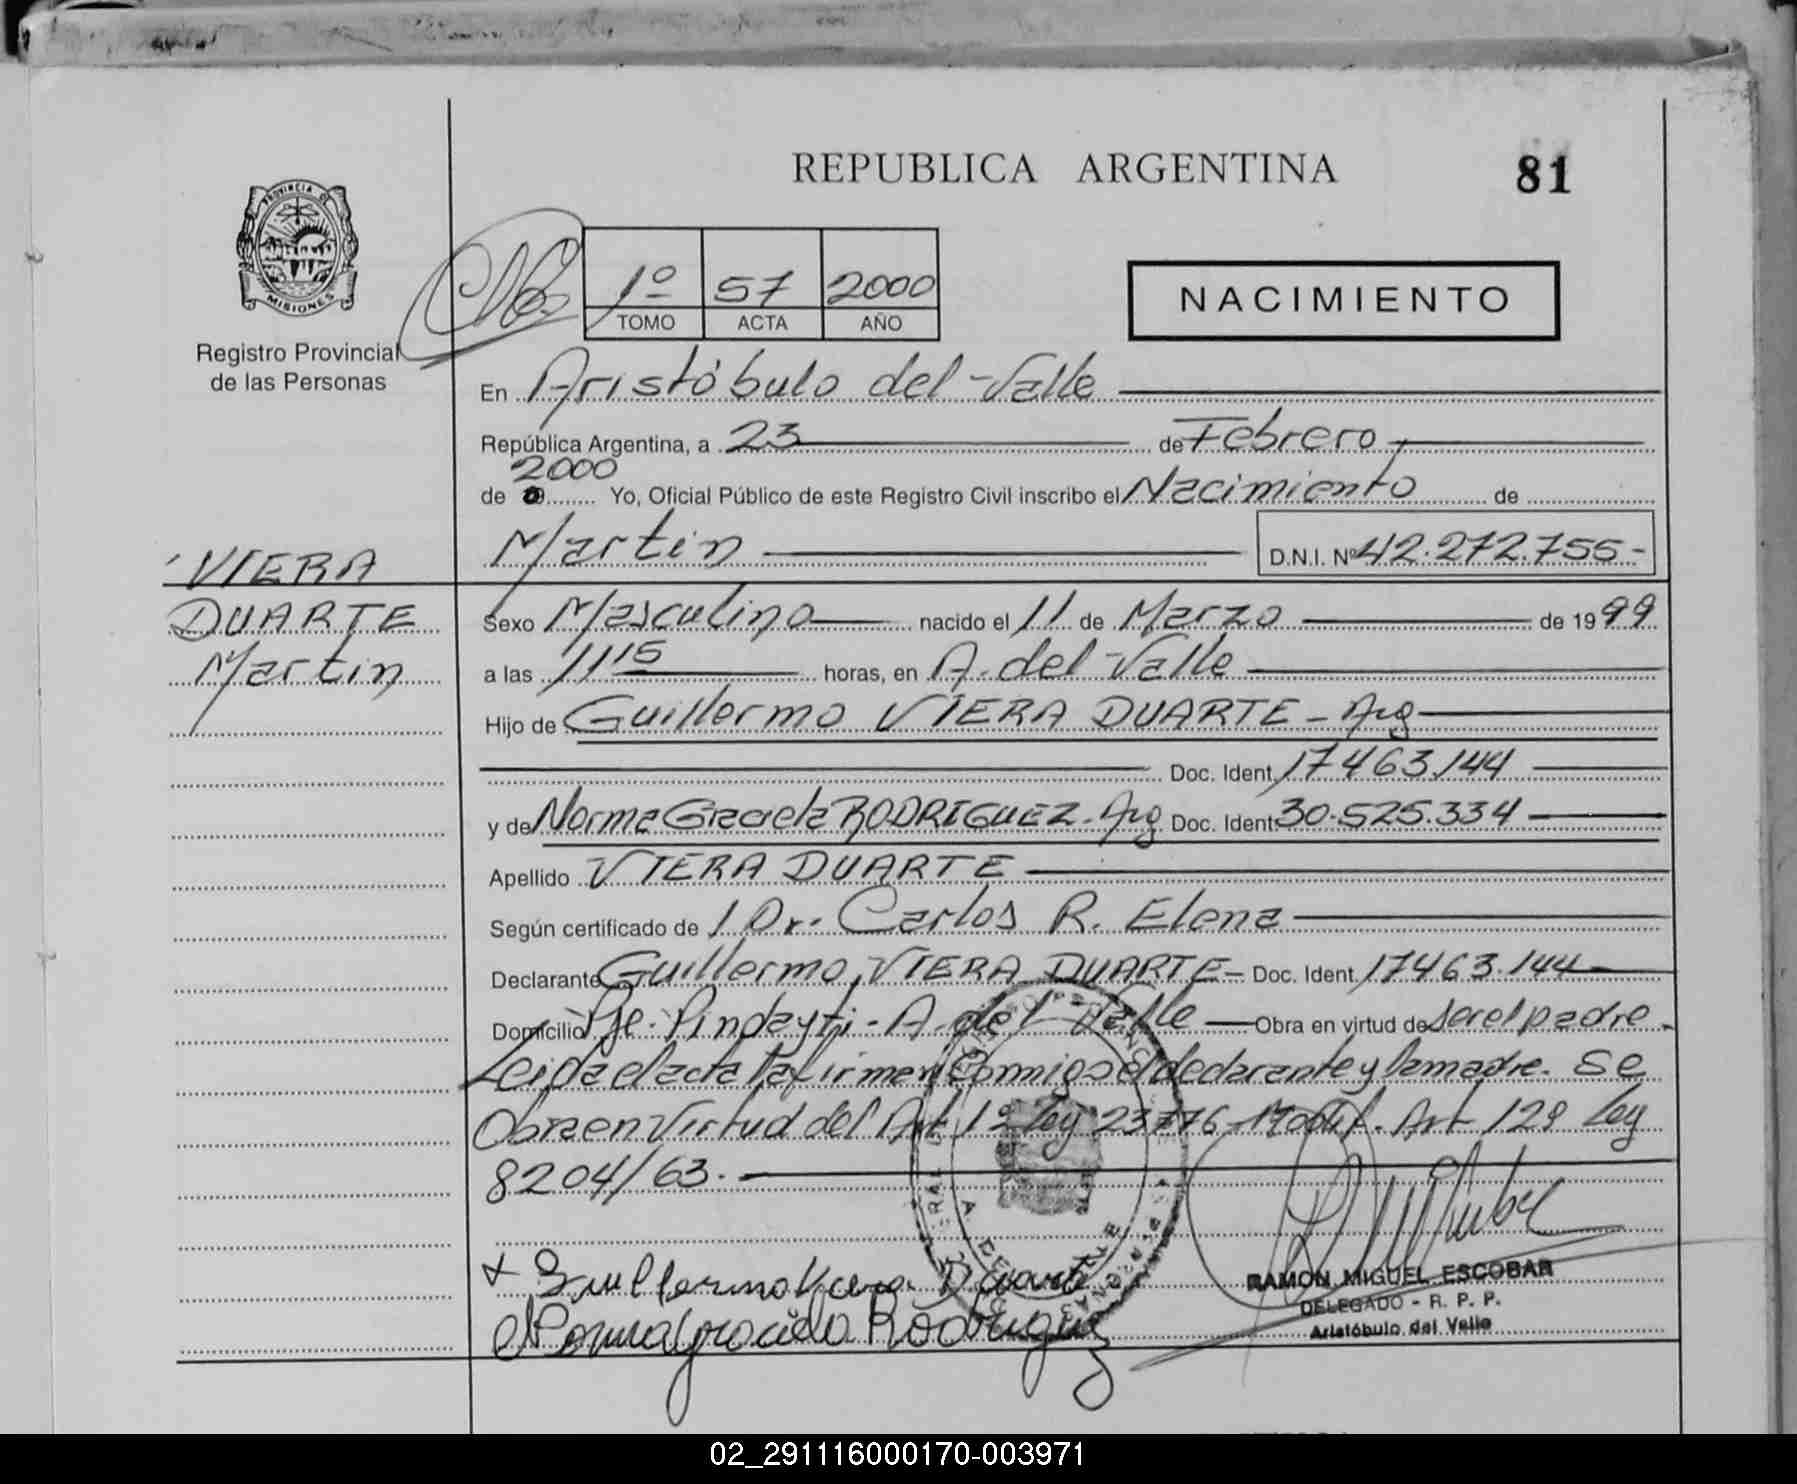 REPUBLICA ARGENTINA
81
PROVINCIA DE
MISIONES
Registro Provincial
de las Personas
1º 57 2000
TOMO ACTA AÑO
NACIMIENTO
En Aristóbulo del Valle
República Argentina, a 23 de Febrero
2000
de Yo, Oficial Público de este Registro Civil inscribo el Nacimiento de
Martin D.N.I. Nº 42.272.755-
VIERA
DUARTE
Martin
Sexo Masculino nacido el 11 de Marzo de 1999
a las 11 15 horas, en A. del Valle
Hijo de Guillermo VIERA DUARTE - Arg
Doc. Ident. 17463.144
y de Norma Graciela RODRIGUEZ - Arg Doc. Ident. 30.525.334
Apellido VIERA DUARTE
Según certificado de 1 Dr. Carlos R. Elena
Declarante Guillermo VIERA DUARTE - Doc. Ident. 17463.144
Domicilio Pje. Pindayti - A. del Valle Obra en virtud de ser el padre.
Leida el acta la firman conmigo el declarante y la madre. Se
Obra en Virtud del Art 1º Ley 23776 Modif. Art 129 Ley
8204/63.
+ Guillermo Viera Duarte
Norma Graciela Rodriguez
RAMON MIGUEL ESCOBAR
DELEGADO - R. P. P.
Aristóbulo del Valle
02_291116000170-003971